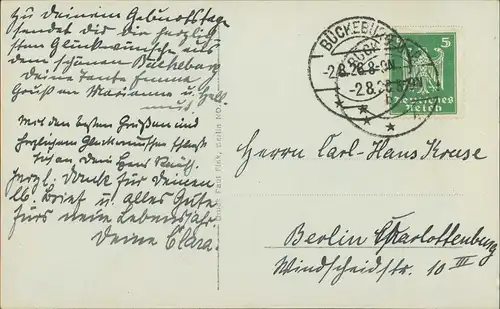 Zu deinem Geburtstage
sendet dir die herzlig
sten Glückwünsche aus
dem schönen Bückeburg
deine Tante Emma
Gruß an Marianne u.
Mit den besten Grüßen und
herzlichem Glückwunsch
dein Hans
Herzl. Dank für deinen
lb. Brief u. alles Gute
fürs neue Lebensjahr
Deine Clara.
Paul Fink, Berlin NO.
BÜCKEBURG
-2.8.26.8-9N
5
Deutsches
Reich
Herrn Carl-Hans Krause
Berlin Charlottenburg
Windscheidstr. 10 III